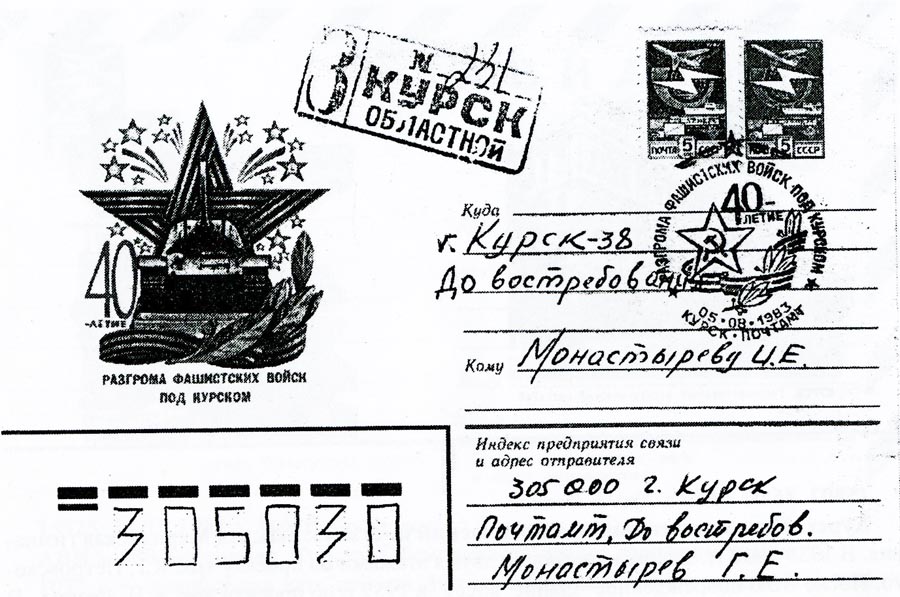 З
№ 231
КУРСК
ОБЛАСТНОЙ
ПОЧТА 5 СССР
ПОЧТА 5 СССР
РАЗГРОМА ФАШИСТСКИХ ВОЙСК ПОД КУРСКОМ
40-ЛЕТИЕ
05·08·1983
КУРСК·ПОЧТАМТ
40
-ЛЕТИЕ
РАЗГРОМА ФАШИСТСКИХ ВОЙСК
ПОД КУРСКОМ
Куда
г. Курск-38
До востребования
Кому Монастыреву И.Е.
Индекс предприятия связи
и адрес отправителя
305000 г. Курск
Почтамт, До востребов.
Монастырев Г.Е.
305030